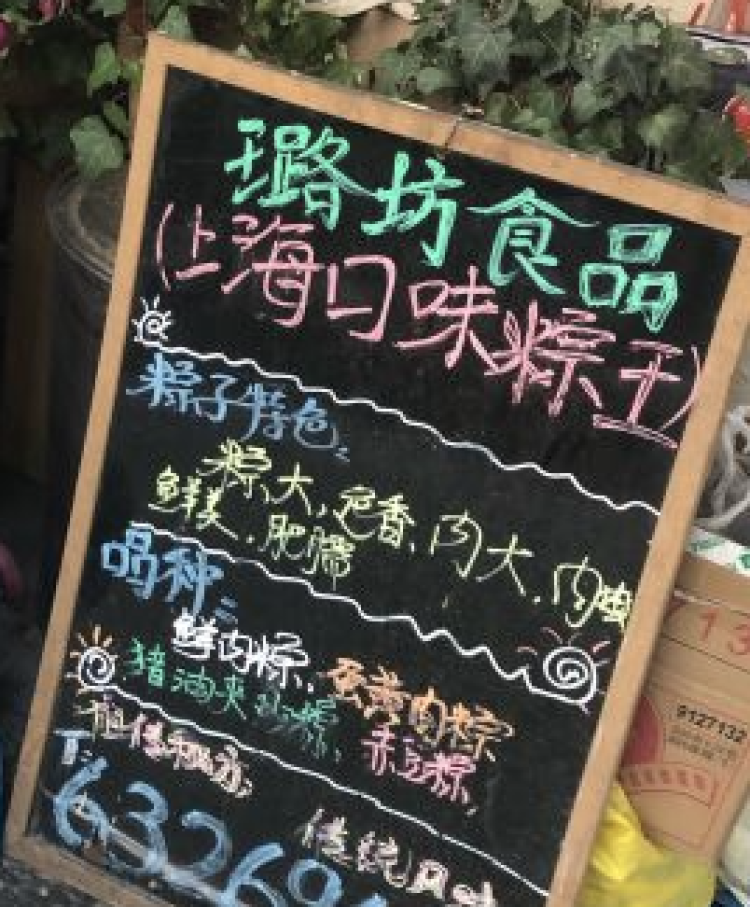 璐坊食品
(上海口味粽王)
粽子特色:
粽大,色香,肉大,肉
鲜美,肥
品种:
鲜肉粽,蛋黄肉粽
猪油夹沙粽,赤豆粽,
祖传秘方,
传统风味
T:
63269
9127132
713